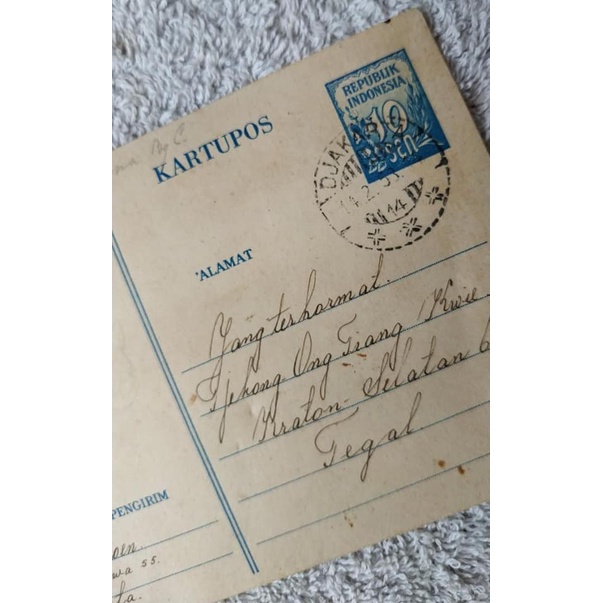 KARTUPOS
REPUBLIK
INDONESIA
10
SEN
DJAKAR
14
'ALAMAT
Yang terhormat.
Tjekong Ong Tiang Kwie.
Kraton Selatan
Tegal.
PENGIRIM
55.